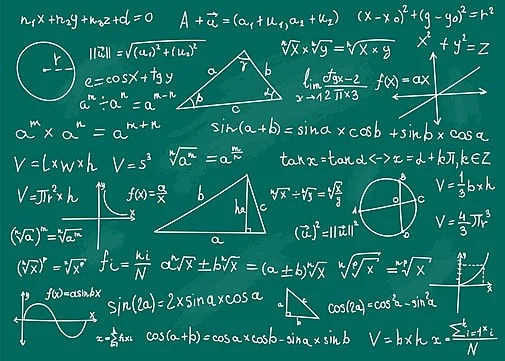 n₁x+n₂y+n₃z+d=0 A+a⃗=(a₁+u₁,a₂+u₂) (x-x₀)²+(y-y₀)²=r²
r ||u⃗||=√(u₁)²+(u₂)² a b γ β α c ⁿ√x×ⁿ√y=ⁿ√x×y x²+y²=Z
e=cosx+tgy lim x→12 f(x)=ax
aᵐ÷aⁿ=aᵐ⁻ⁿ
aᵐ×aⁿ=aᵐ⁺ⁿ sin(a+b)=sina×cosb+sinb×cosa
V=L×w×h V=s³ ⁿ√aᵐ=a^(m/n) tanx=tanα<->x=α+kπ,k∈Z
V=πr²×h f(x)=a/x b ha c a ⁿ√x÷ⁿ√y=ⁿ√x/y A B C D O V=1/3b×h
(ⁿ√a)ᵐ=ⁿ√aᵐ (u⃗)²=||u⃗||² V=4/3πr³
(ⁿ√x)ᵖ=ⁿ√xᵖ fi=ni/N aⁿ√x±bⁿ√x=(a±b)ⁿ√x ⁿ√ᵖ√x=ⁿᵖ√x
y f(x)=asinbx x sin(2a)=2×sina×cosa a b c cos(2a)=cos²a-sin²a
cos(a+b)=cosa×cosb-sina×sinb V=b×h x=∑ᵢ₌₁xᵢ/N